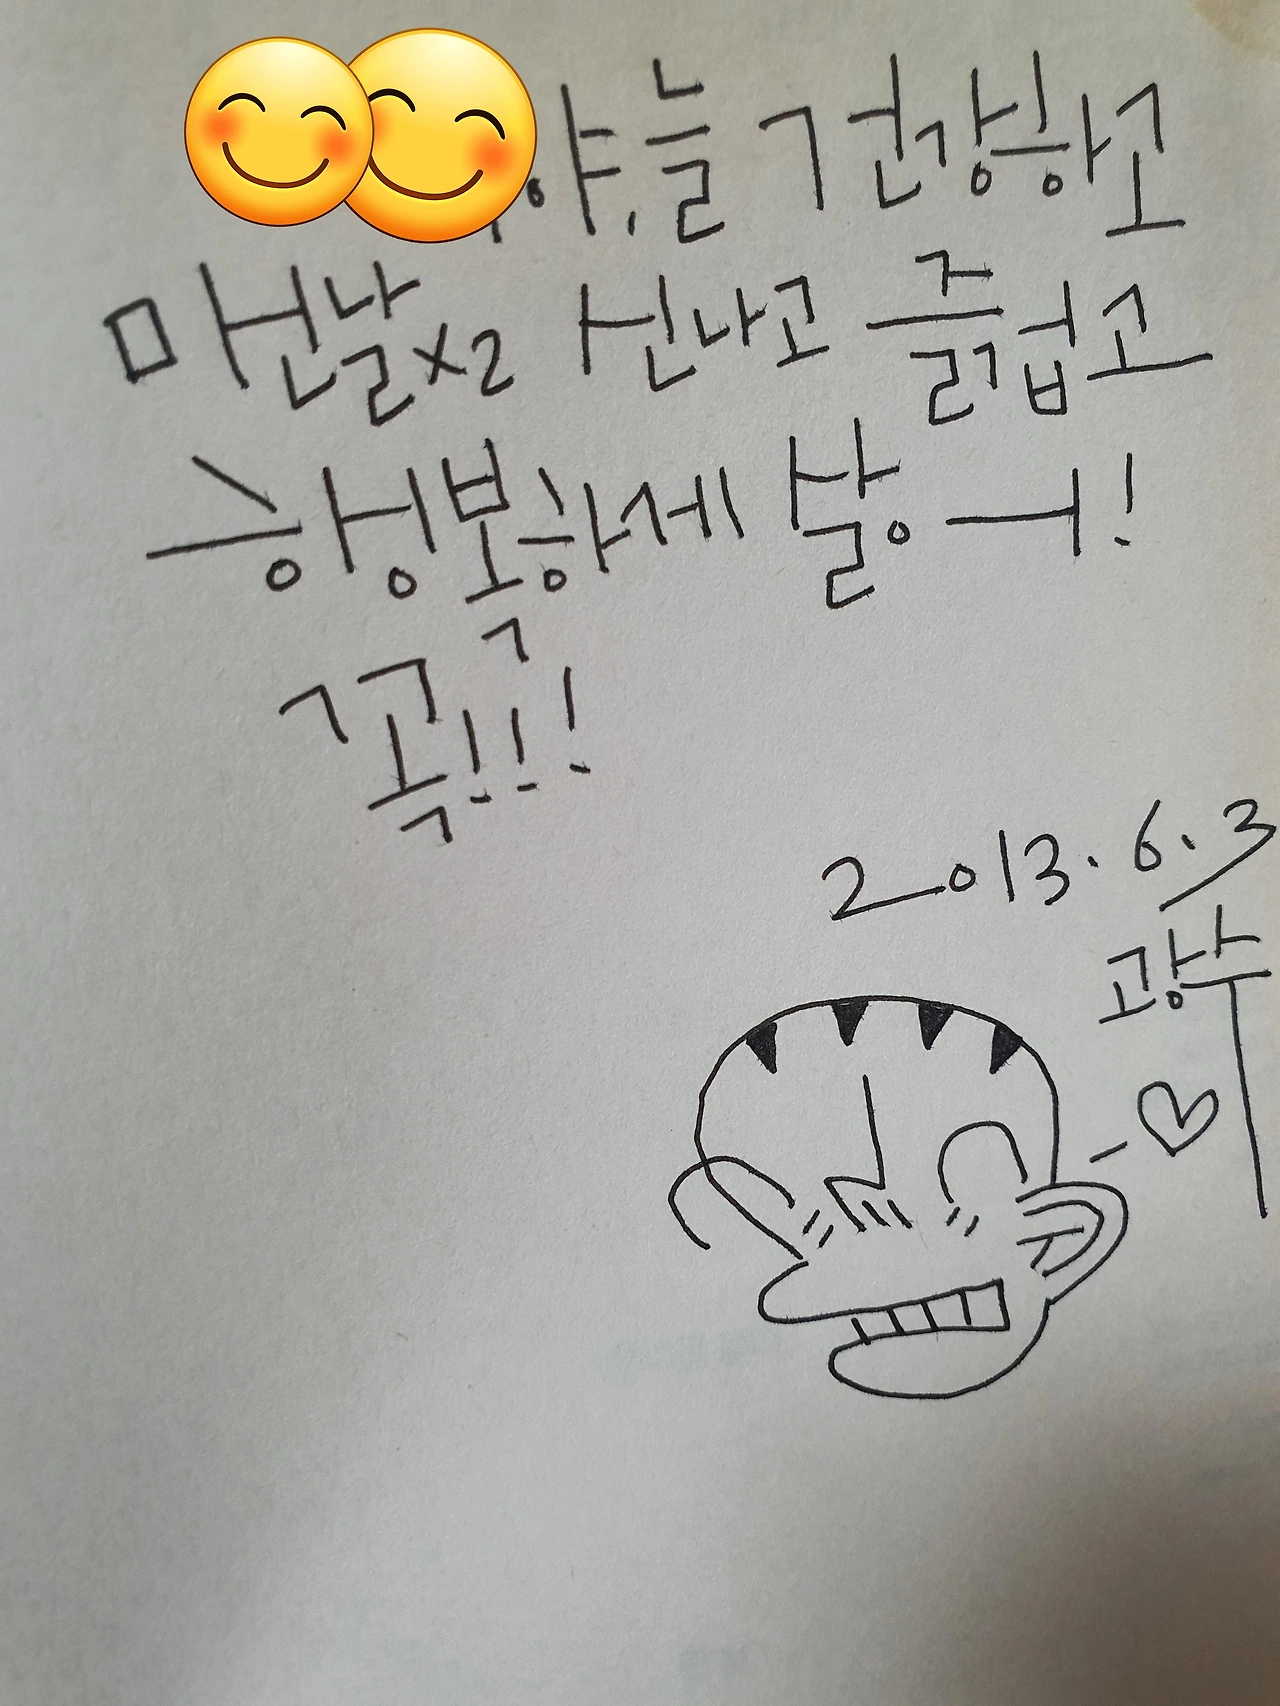 야, 늘 건강하고
맨날x2 신나고 즐겁고
행복하게 살아!
꼭!!!
2013.6.3
광수